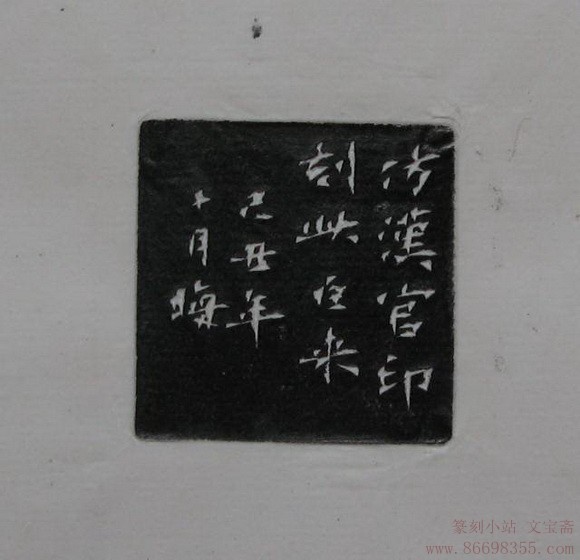 仿漢官印
刻此
来
己丑年
十月晦
篆刻小站 文宝斋
www.86698355.com